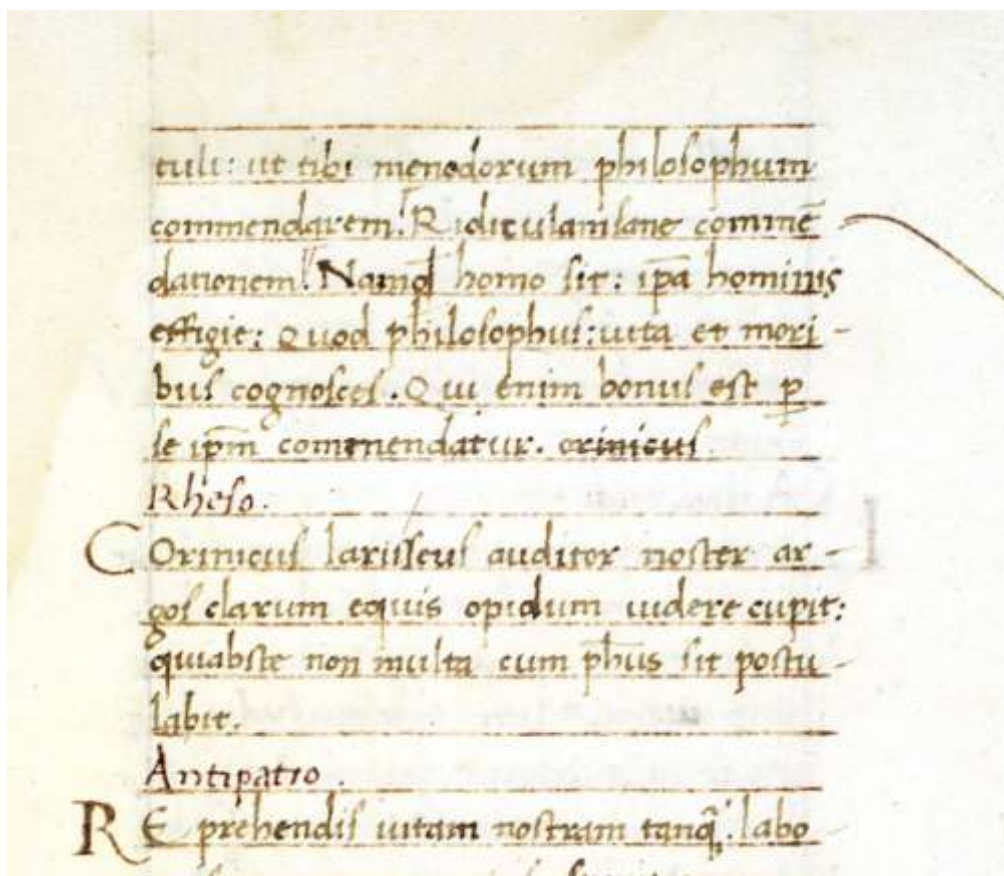 tuli: ut tibi menodorum philosophum
commendarem. Ridiculam sane commē
dationem. Namqđ homo sit: ip̄a hominis
effigie: Quod philosophus: uita et mori -
bus cognosces. Qui enim bonus est ꝑ
se ip̄m commendatur. orinicus
Rheso.
COrinicus larisseus auditor noster ar -
gos clarum equis opidum uidere cupit:
qui abs te non multa cum ph̄us sit postu -
labit.
Antipatro.
RE prehendis uitam nostram tanq̄. labo